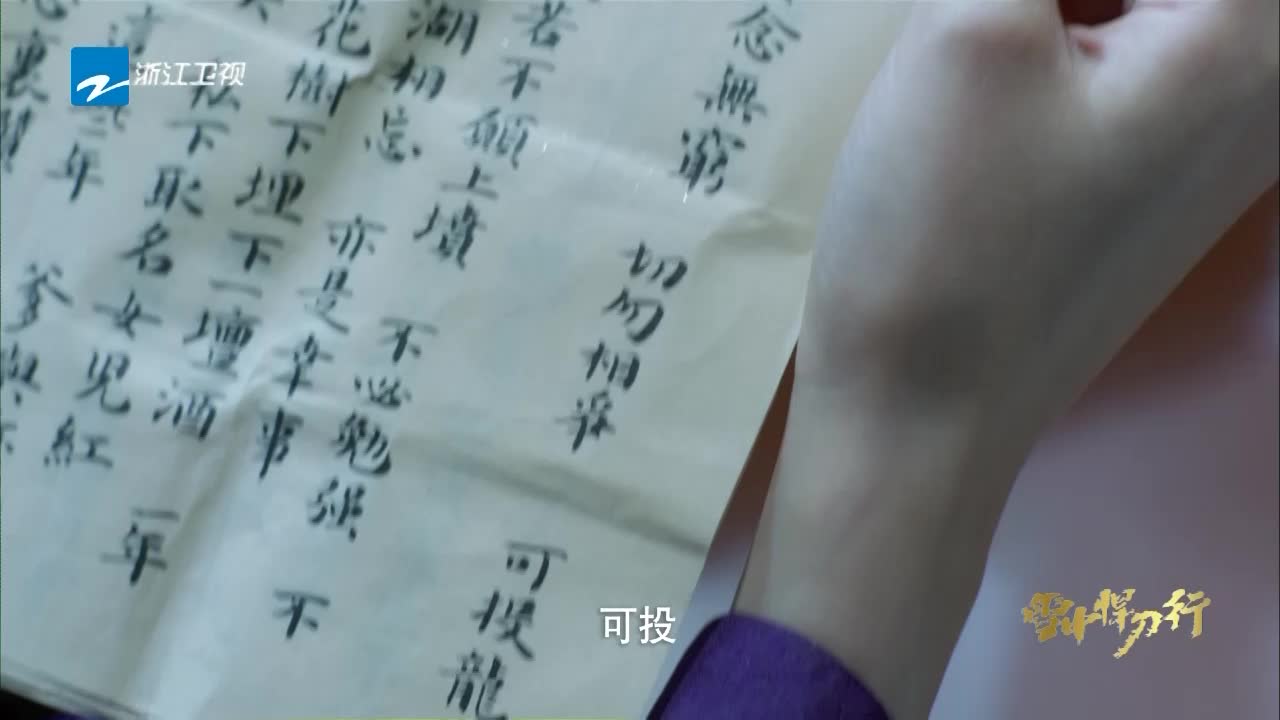 浙江卫视
念無窮 切勿相爭 可投龍
若不願上墳 不必勉强 不
湖相忘 亦是幸事
花樹下埋下一壇酒 一年
私下取名女兒紅
年 爹與
裏
可投
雪中悍刀行